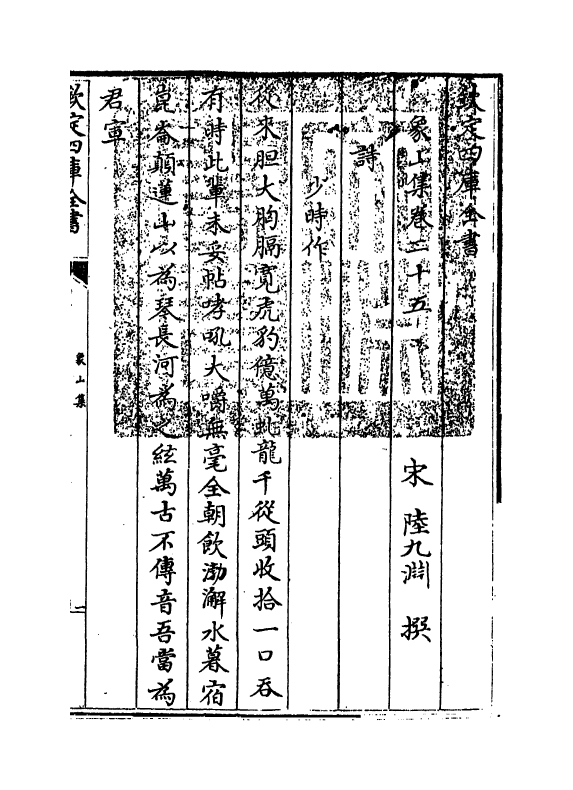 欽定四庫全書
象山集卷二十五
宋 陸九淵 撰
詩
少時作
從来胆大胸膈寛虎豹億萬虬龍千從頭收拾一口吞
有時此輩未妥帖哮吼大嚼無毫全朝飲渤澥水暮宿
崑崙顛連山以為琴長河為之絃萬古不傳音吾當為
君宣
欽定四庫全書
象山集
一